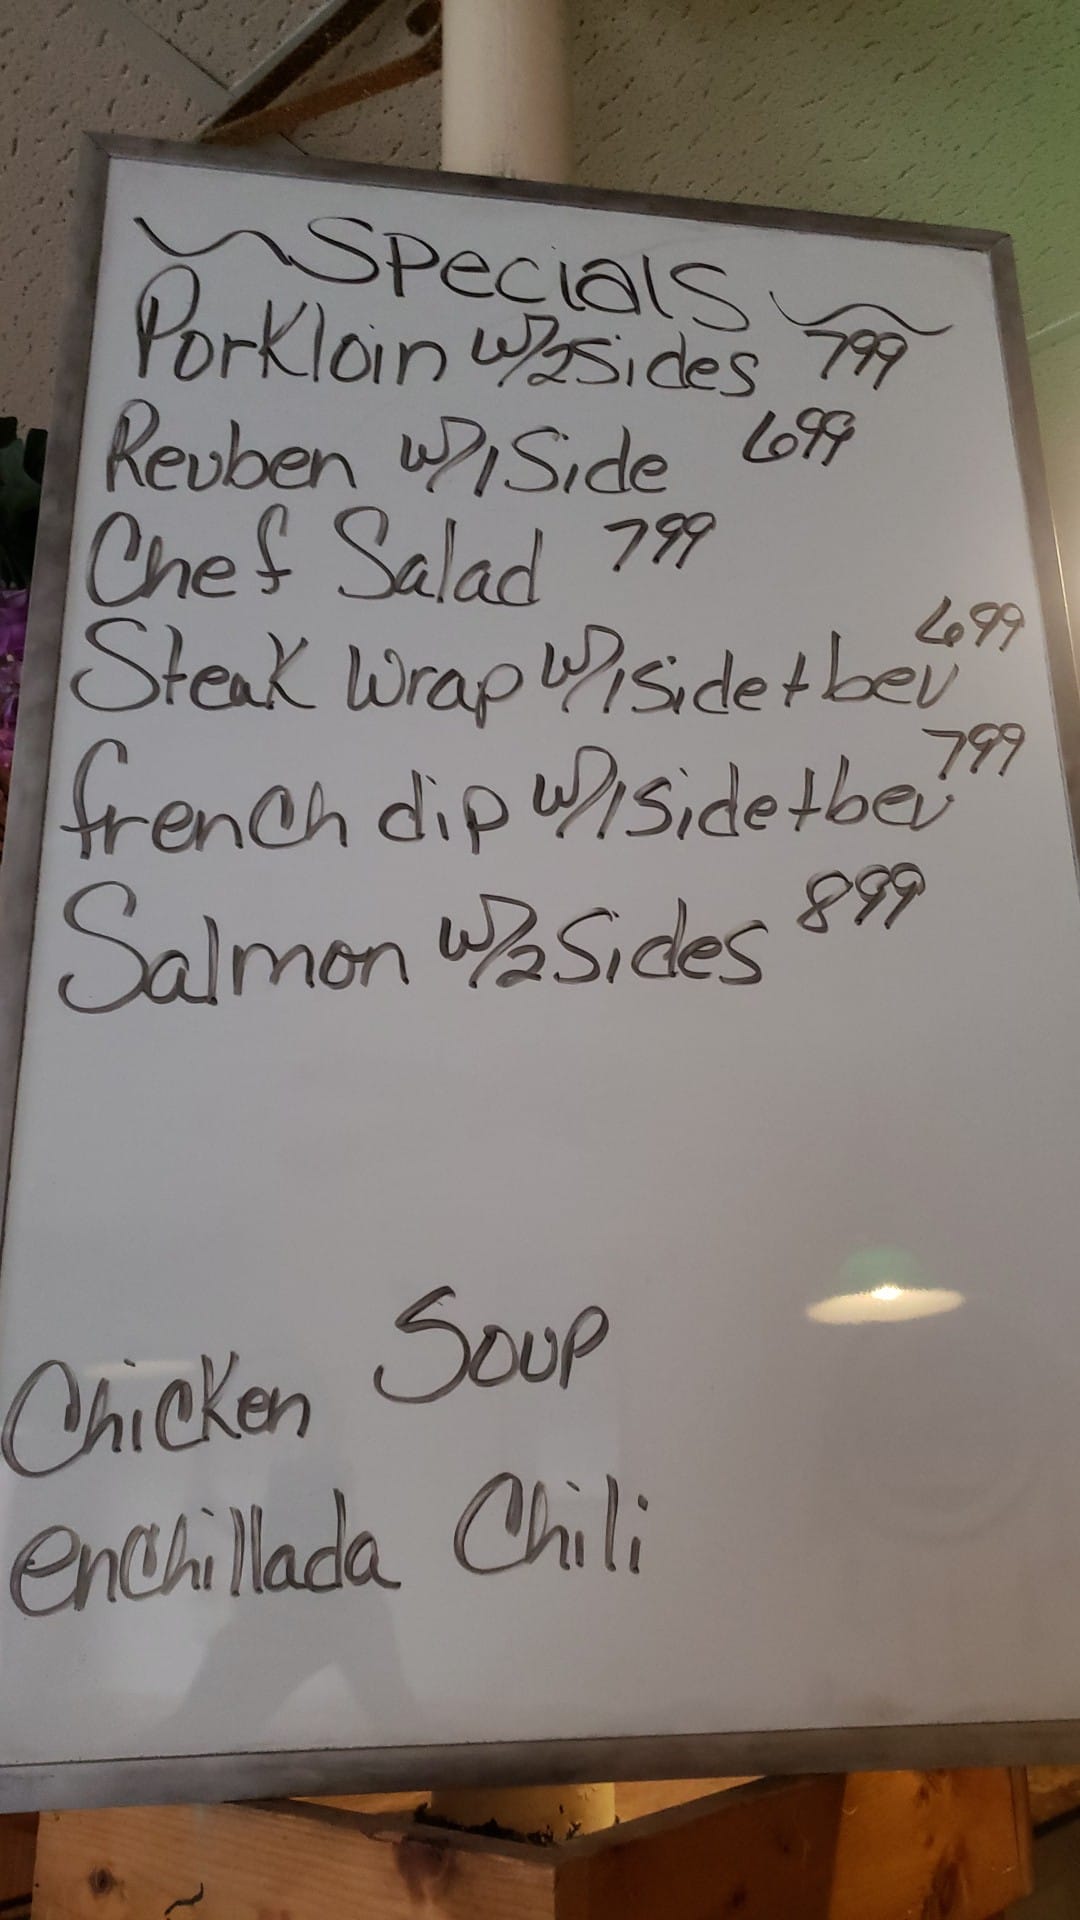 Specials
Porkloin w/2sides 799
Reuben w/1 Side 699
Chef Salad 799
Steak Wrap w/1side + bev 699
french dip w/1side + bev 799
Salmon w/2 Sides 899
Soup
Chicken
enchillada Chili